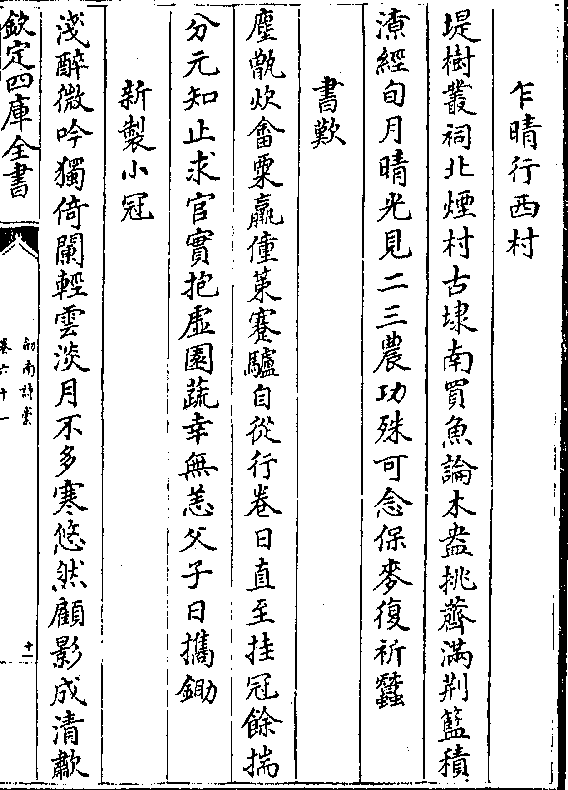 乍晴行西村
堤樹叢祠北煙村古埭南買魚論木盎挑薺滿荆籃積
潦經旬月晴光見二三農功殊可念保麥復祈蠶
書歎
塵甑炊畬粟羸僮策蹇驢自從行卷日直至挂冠餘揣
分元知止求官實抱虛園蔬幸無恙父子日攜鋤
新製小冠
淺醉微吟獨倚闌輕雲淡月不多寒悠然顧影成清歗
欽定四庫全書
劍南詩槀
卷六十一
十一